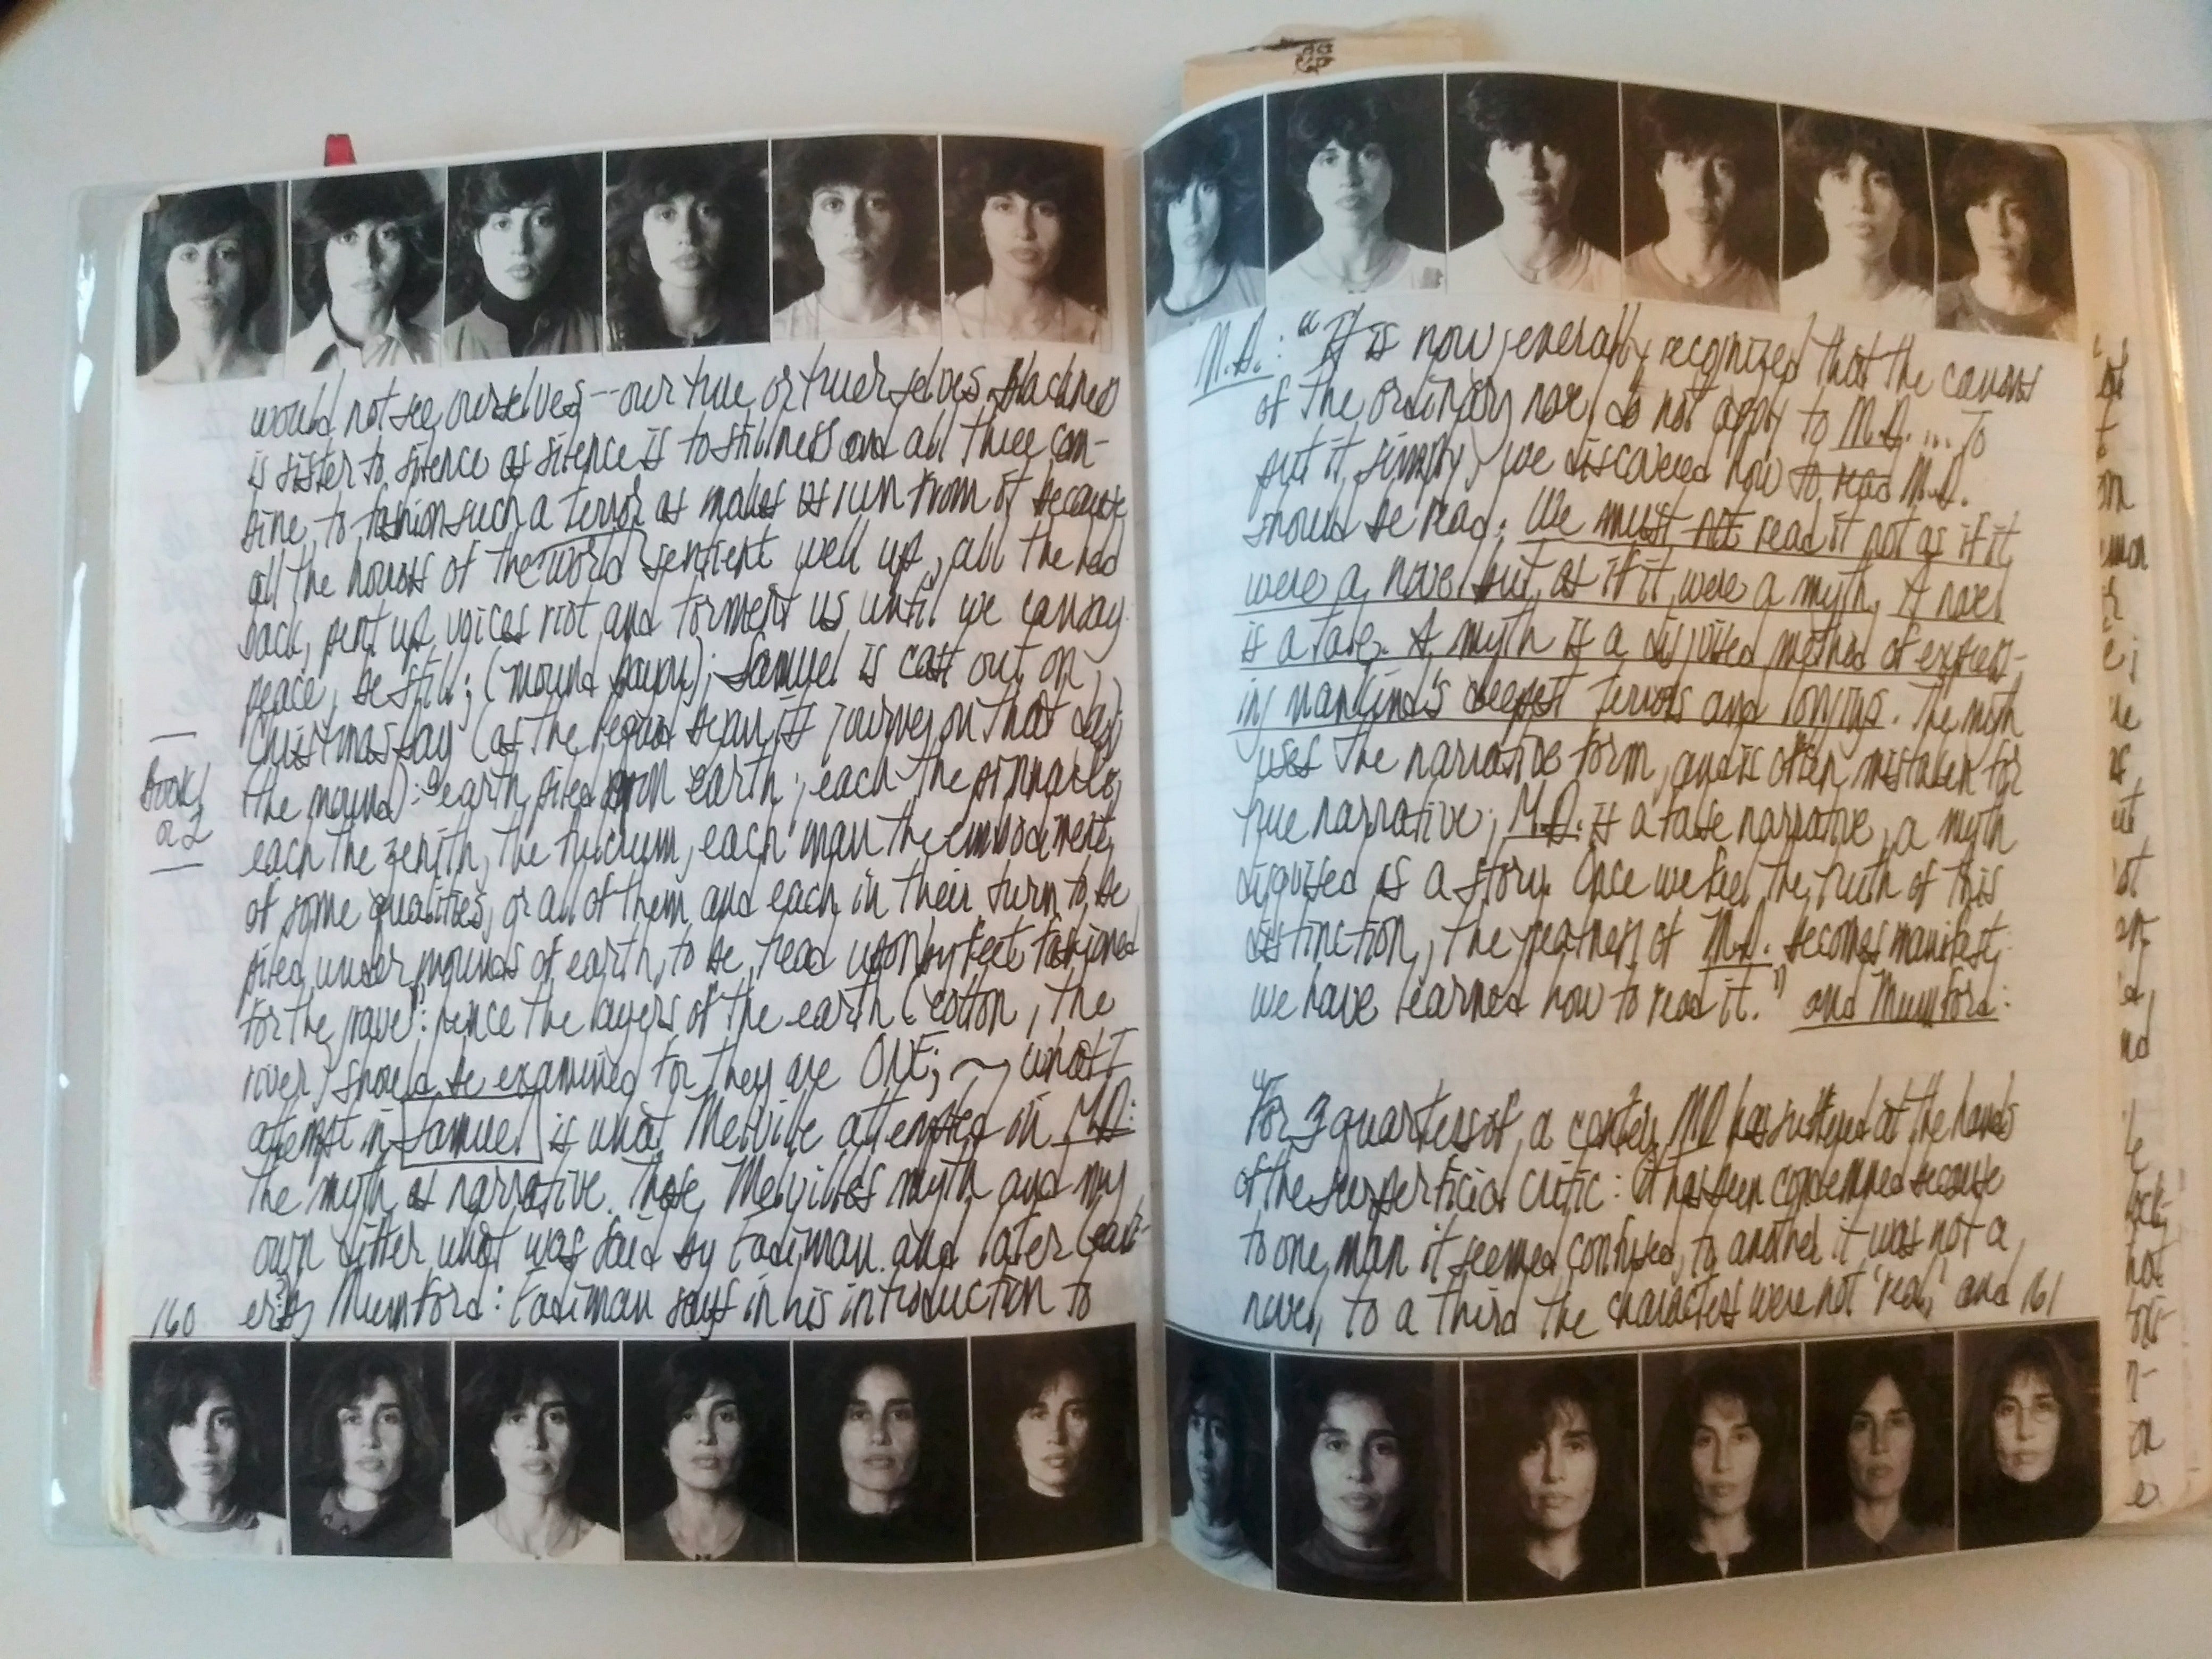 would not see ourselves -- our true or truer selves. Blackness
is sister to silence as silence is to stillness and all three com-
bine to fashion such a terror as makes us run from it because
all the of the world sentient well up, all the held
back, pent up voices riot and torment us until we can say
peace, be still; (mound bayou); Samuel is cast out on
Christmas day (as the began its journey on that day)
Book/
a2
(the mound): "earth piled upon earth; each the pinnacle,
each the zenith, the fulcrum, each man the embodiment
of some qualities, or all of them and each in their turn to be
piled under mounds of earth, to be tread upon by feet fashioned
for the grave": hence the layers of the earth (cotton, the
river) should be examined for they are ONE; ~ what I
attempt in Samuel is what Melville attempted in M.D:
the myth as narrative. Those, Melville's myth and my
own after what was said by Fadiman and later (earli-
er?) by Mumford: Fadiman says in his introduction to
160
M.D.: "It is now generally recognized that the canons
of the ordinary novel do not apply to M.D. ... To
put it simply, we discovered how to read M.D.
should be read. We must not read it not as if it
were a novel but as if it were a myth. A novel
is a tale. A myth is a disguised method of express-
ing mankind's deepest terrors and longings. The myth
uses the narrative form, and is often mistaken for
true narrative; M.D. is a false narrative, a myth
disguised as a story. Once we feel the truth of this
distinction, the greatness of M.D. becomes manifest:
we have learned how to read it." and Mumford:
"For 3 quarters of a century MD has suffered at the hands
of the superficial critic: it has been condemned because
to one man it seemed confused, to another it was not a
novel, to a third the characters were not 'real,' and
161